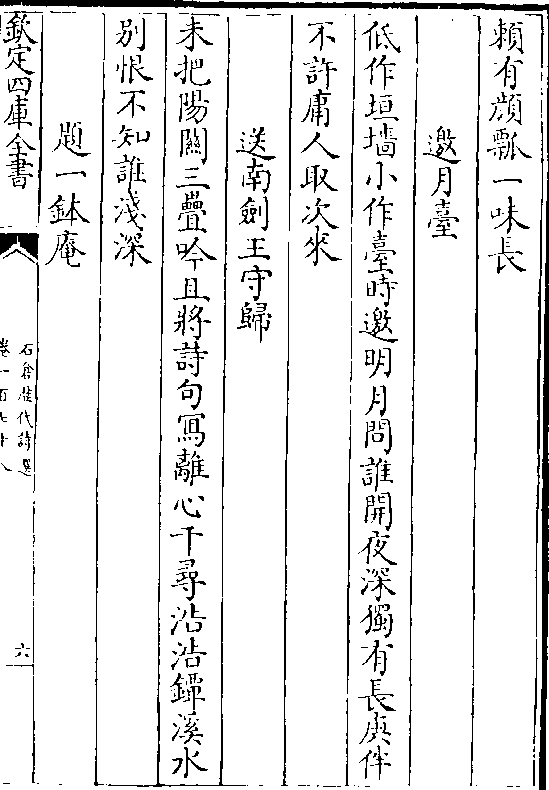 頼有顔瓢一味長
邀月臺
低作垣墻小作臺時邀明月問誰開夜深獨有長庚伴
不許庸人取次來
送南劍王守歸
未把陽關三疊吟且將詩句寫離心千尋沿沿鐔溪水
别恨不知誰淺深
題一鉢庵
欽定四庫全書
石倉歷代詩選
卷一百七十八
六